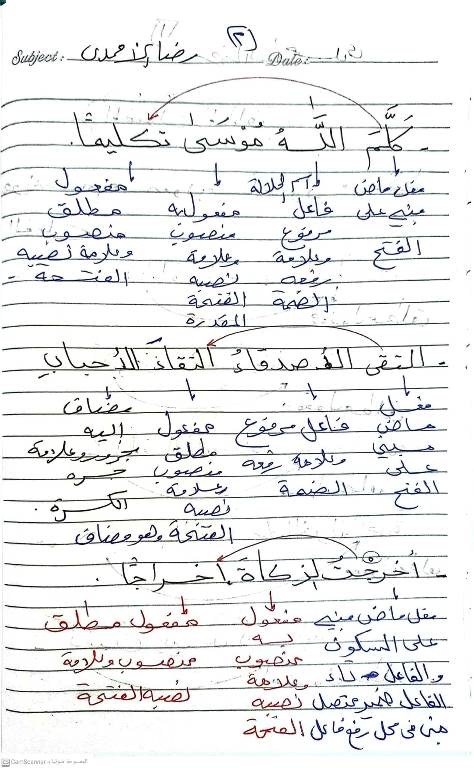 (٢)
Subject: رضا الاحمدى Date:
- كَلَّمَ اللَّهُ مُوْسَى تكليمًا.
فعل ماض اسم الجلالة مفعول به مفعول
مبني على فاعل منصوب مطلق
الفتح مرفوع وعلامة منصوب
وعلامة نصبه وعلامة نصبه
رفعه الفتحة الفتحة -
الضمة المقدرة
- التقى الأصدقاءُ التقاءَ الأحبابِ
فعل ماضٍ مبني على الفتح
فاعل مرفوع وعلامة رفعه الضمة
مفعول مطلق منصوب وعلامة نصبه الفتحة وهو مضاف
مضاف إليه مجرور وعلامة جره الكسرة.
- أخرجتُ الزكاةَ اخراجًا.
فعل ماض مبني مفعول مفعول مطلق
على السكون به
والفاعل تاء منصوب منصوب وعلامة
الفاعل ضمير متصل وعلامة نصبه نصبه الفتحة
مبني في محل رفع فاعل الفتحة
CamScanner